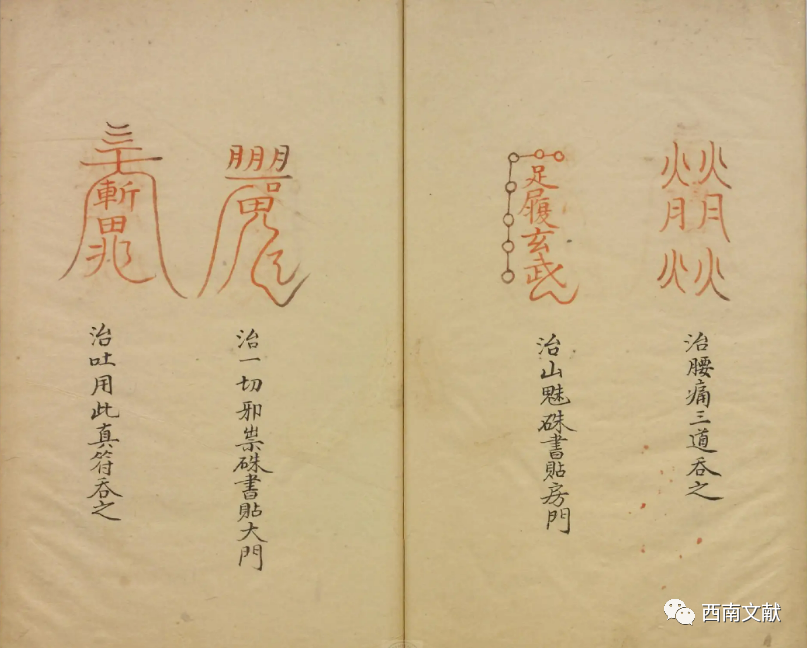 火火
月月
火火
治腰痛三道吞之
足履玄武
治山魅硃書貼房門
治一切邪祟硃書貼大門
斬
治吐用此真符吞之
西南文献